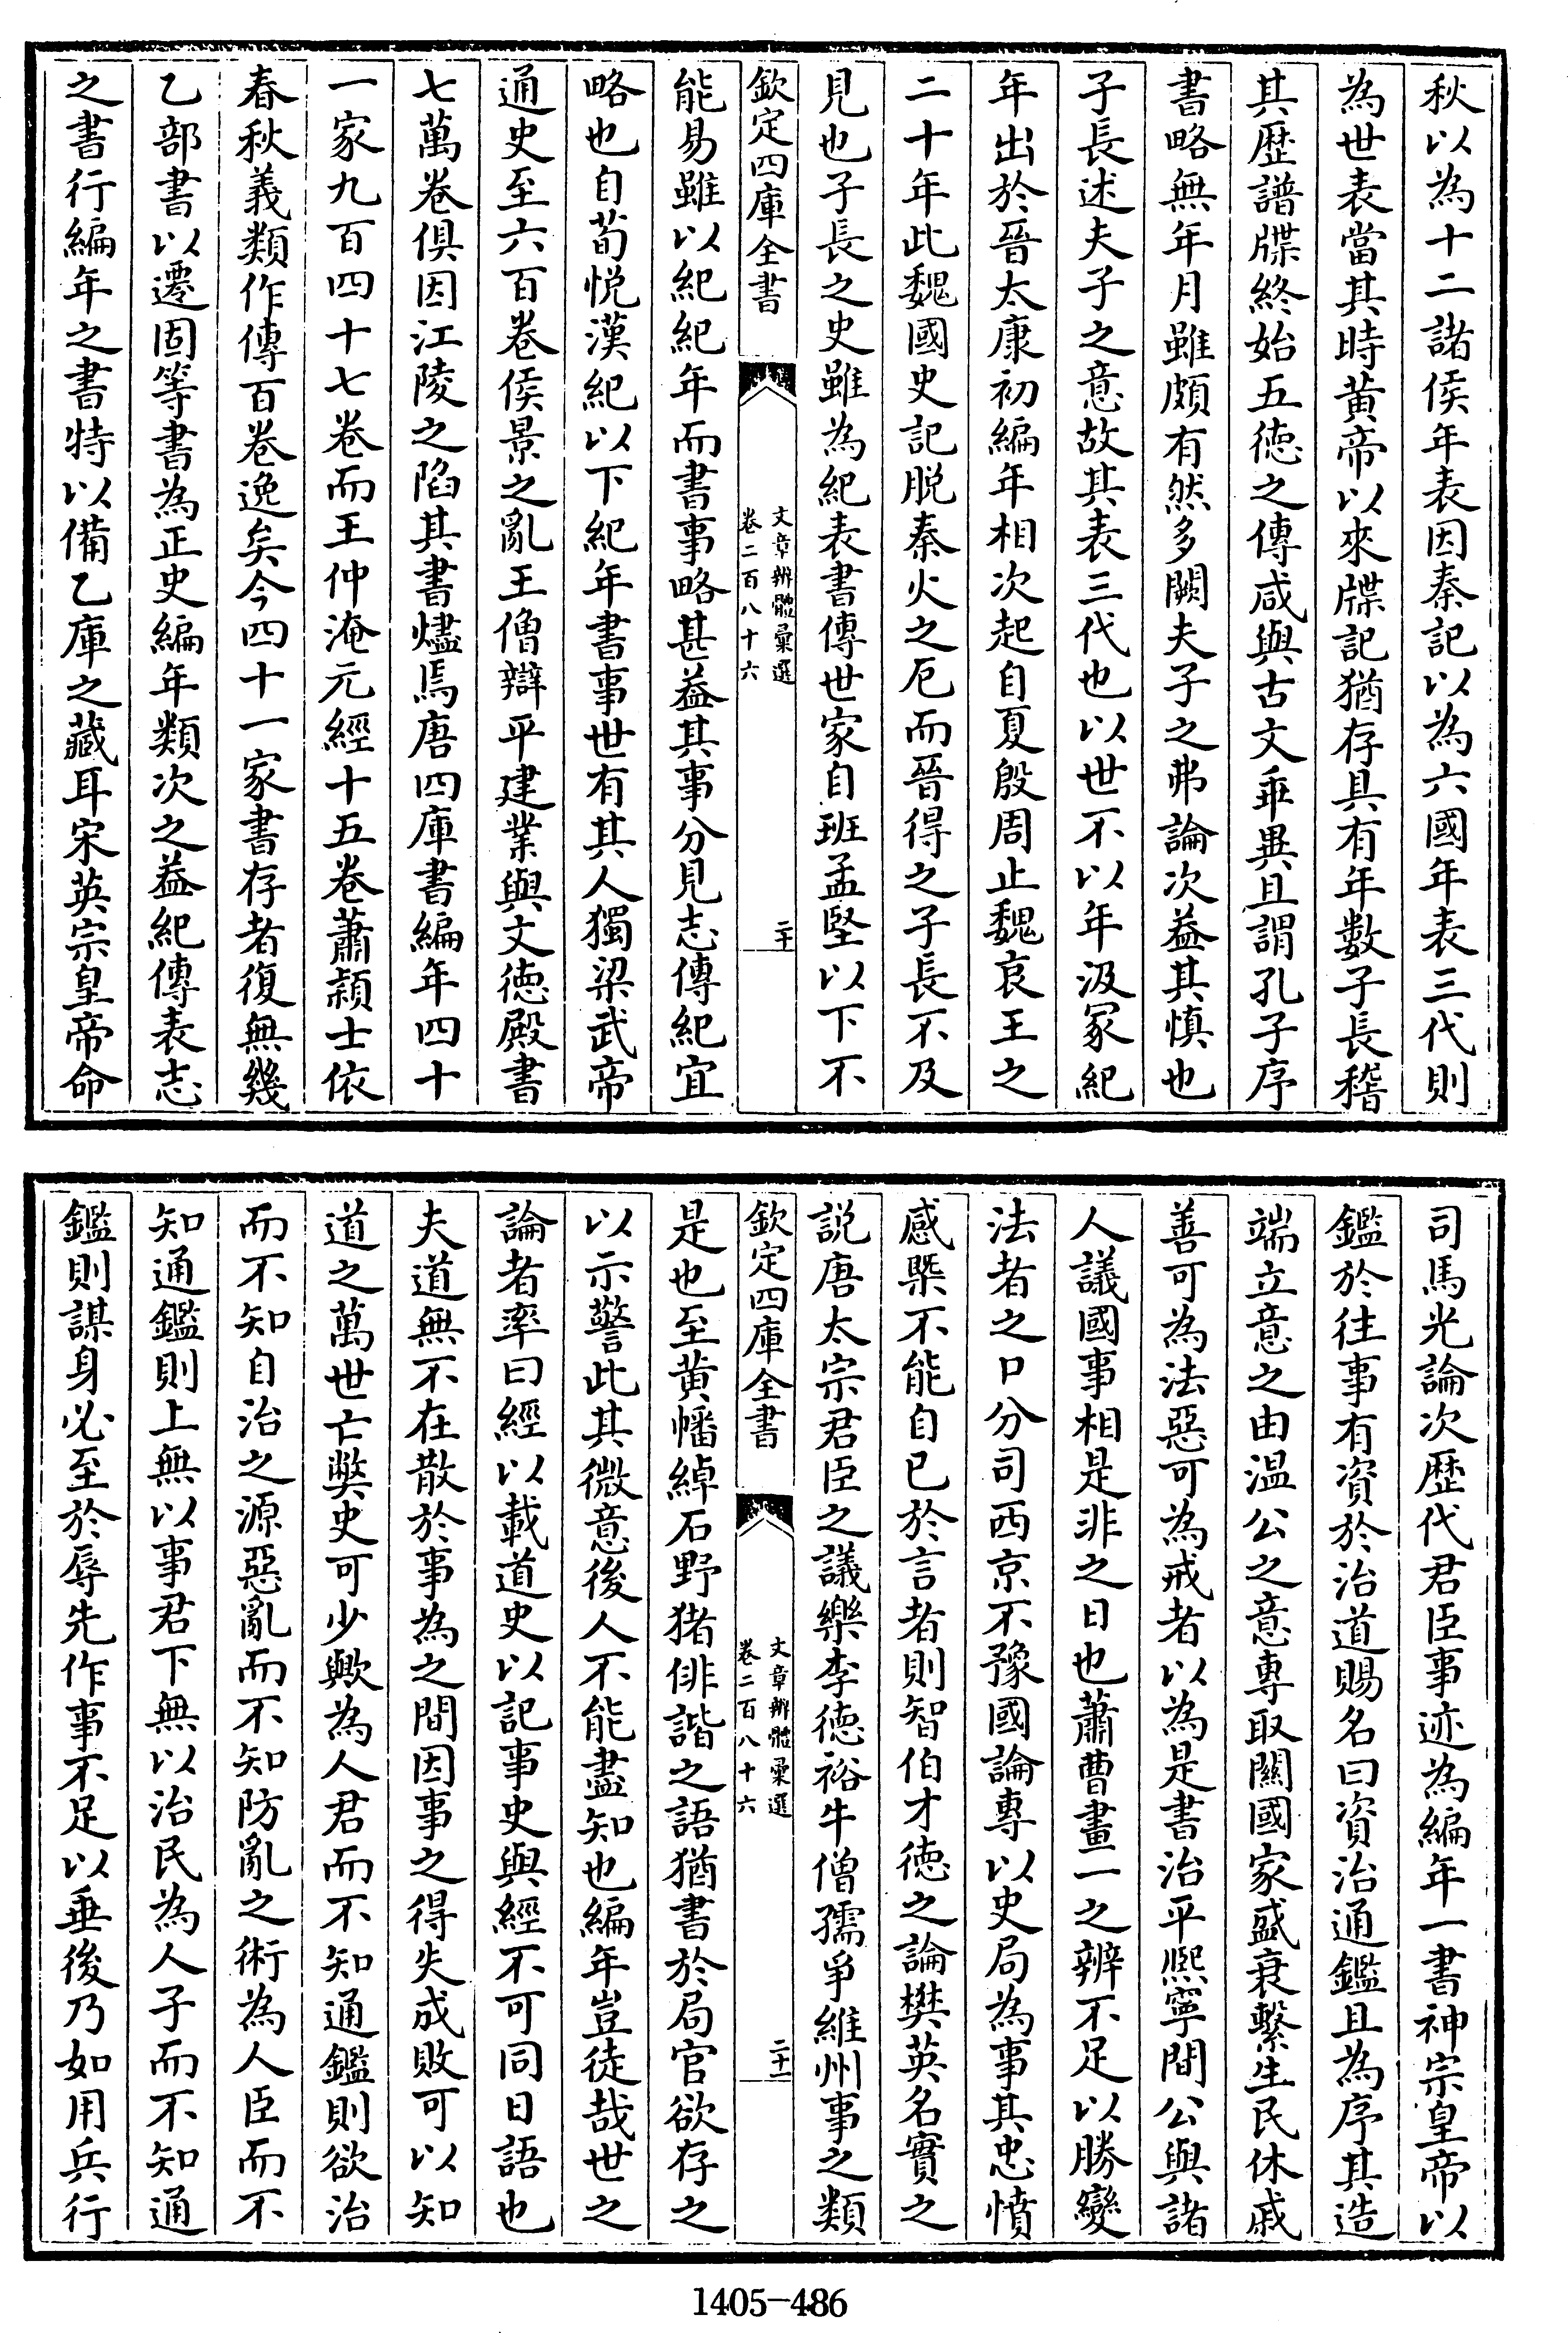 秋以為十二諸侯年表因秦記以為六國年表三代則
為世表當其時黄帝以來牒記猶存具有年數子長稽
其歴譜牒終始五徳之傳咸與古文乖異且謂孔子序
書略無年月雖頗有然多闕夫子之弗論次益其慎也
子長述夫子之意故其表三代也以世不以年汲冢紀
年出於晉太康初編年相次起自夏殷周止魏哀王之
二十年此魏國史記脱秦火之厄而晉得之子長不及
見也子長之史雖為紀表書傳世家自班孟堅以下不
欽定四庫全書
文章辨體彙選
卷二百八十六
二十
能易雖以紀紀年而書事略甚益其事分見志傳紀宜
略也自荀悦漢紀以下紀年書事世有其人獨梁武帝
通史至六百卷侯景之亂王僧辯平建業與文徳殿書
七萬卷俱因江陵之陷其書燼焉唐四庫書編年四十
一家九百四十七卷而王仲淹元經十五卷蕭頴士依
春秋義類作傳百卷逸矣今四十一家書存者復無幾
乙部書以遷固等書為正史編年類次之益紀傳表志
之書行編年之書特以備乙庫之藏耳宋英宗皇帝命
司馬光論次歴代君臣事迹為編年一書神宗皇帝以
鑑於往事有資於治道賜名曰資治通鑑且為序其造
端立意之由温公之意專取關國家盛衰繫生民休戚
善可為法惡可為戒者以為是書治平熙寧間公與諸
人議國事相是非之日也蕭曹畫一之辨不足以勝變
法者之口分司西京不豫國論專以史局為事其忠憤
感槩不能自已於言者則智伯才徳之論樊英名實之
説唐太宗君臣之議樂李徳裕牛僧孺爭維州事之類
欽定四庫全書
文章辨體彙選
卷二百八十六
二十一
是也至黄幡綽石野猪俳諧之語猶書於局官欲存之
以示警此其微意後人不能盡知也編年豈徒哉世之
論者率曰經以載道史以記事史與經不可同日語也
夫道無不在散於事為之間因事之得失成敗可以知
道之萬世亡獘史可少歟為人君而不知通鑑則欲治
而不知自治之源惡亂而不知防亂之術為人臣而不
知通鑑則上無以事君下無以治民為人子而不知通
鑑則謀身必至於辱先作事不足以垂後乃如用兵行
1405-486